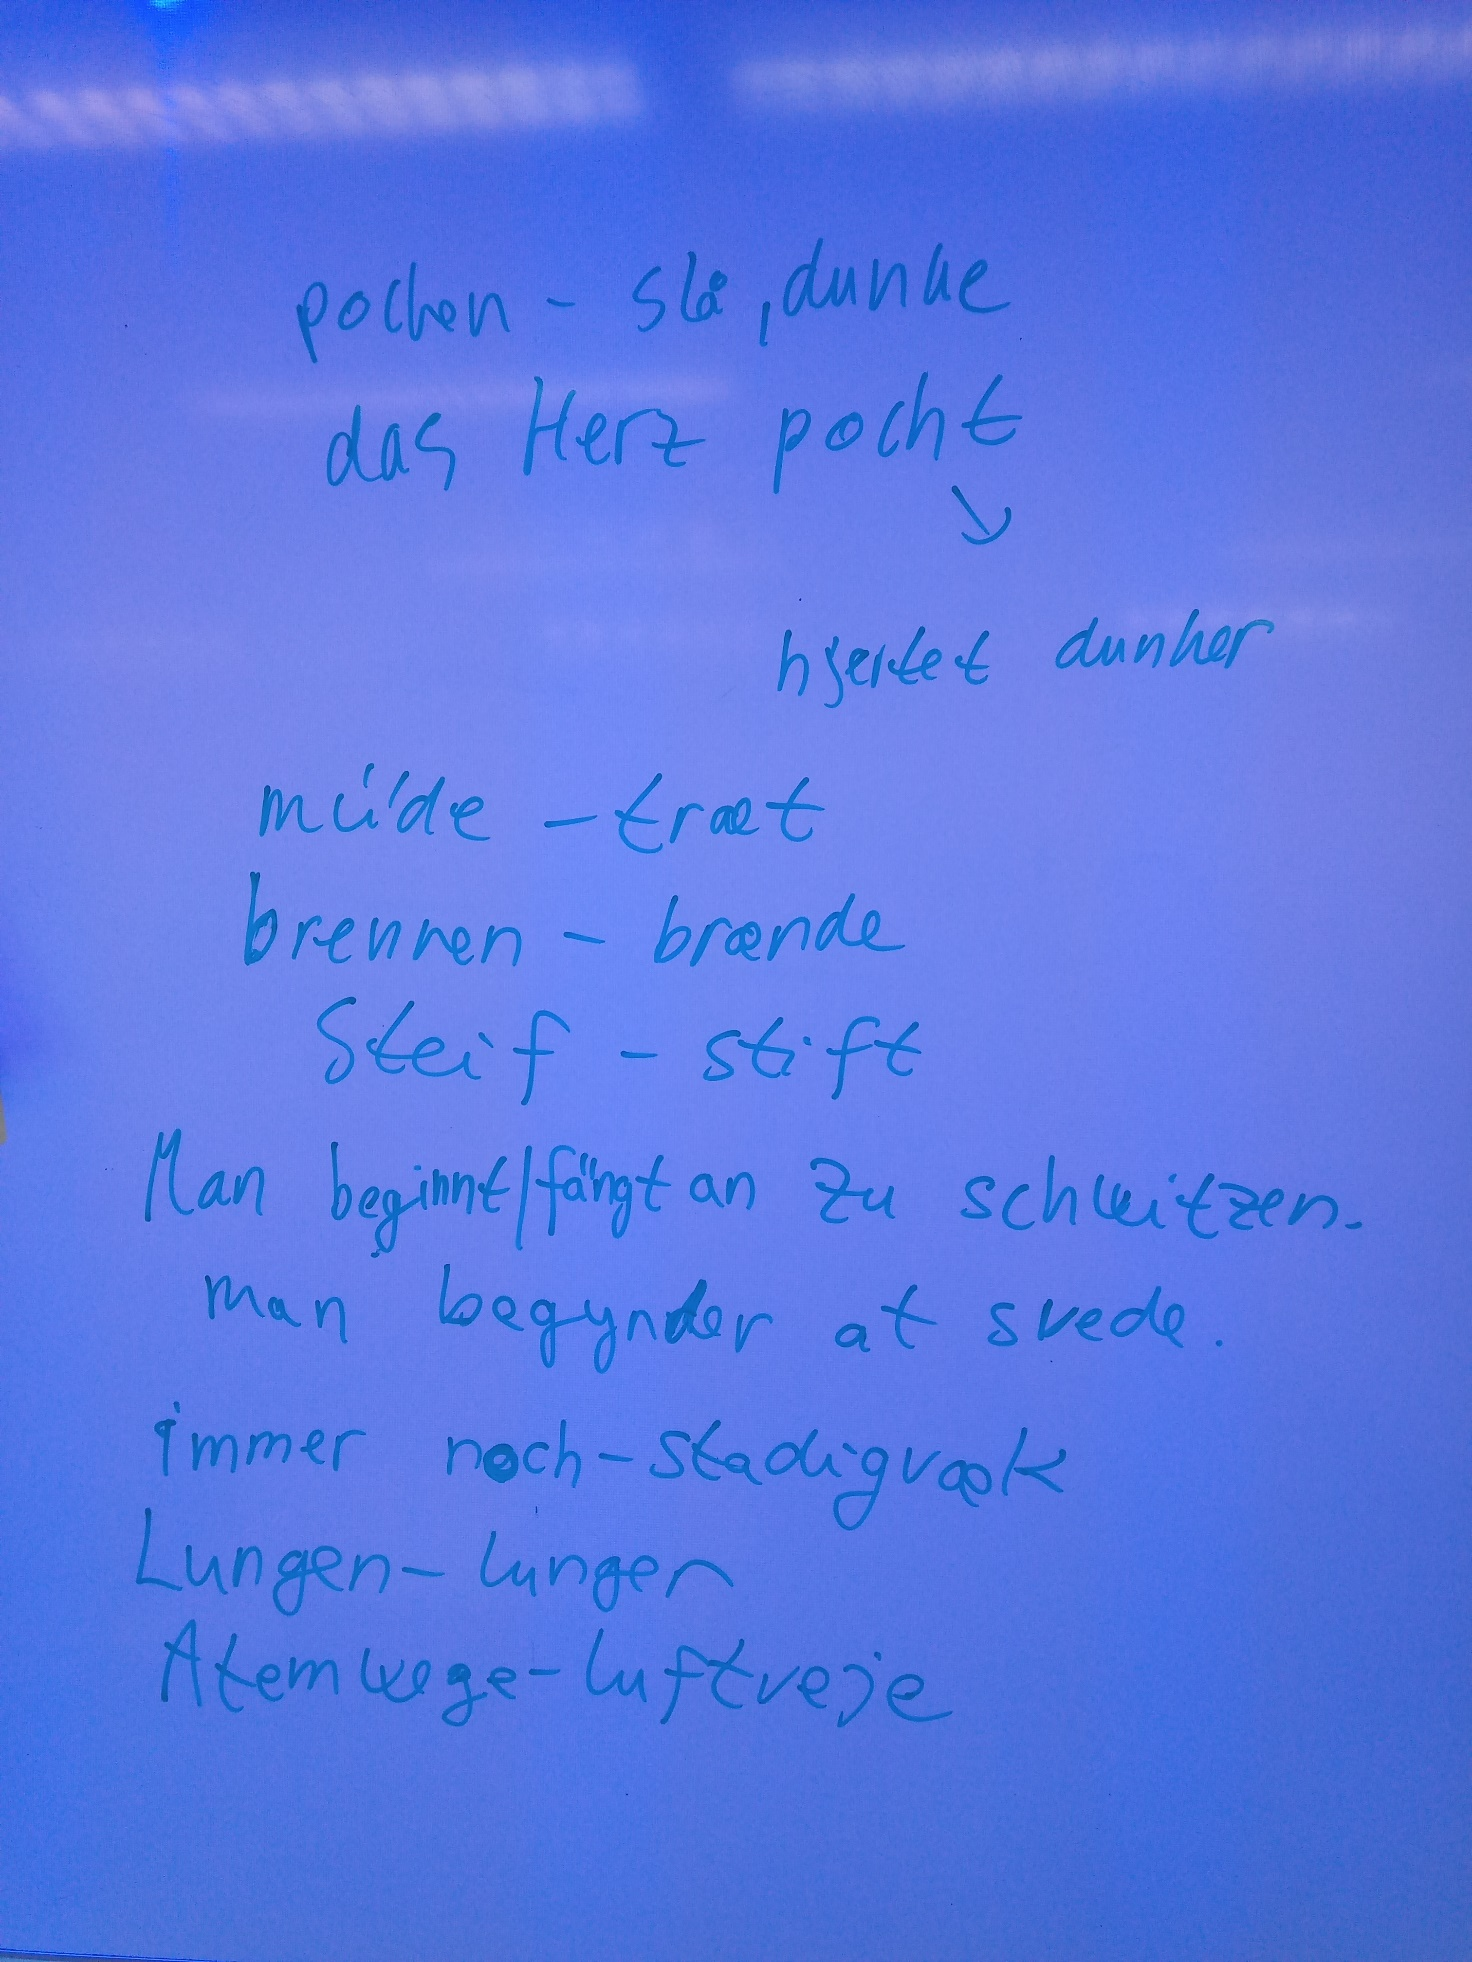 pochen - slå, dunke
das Herz pocht
↘
hjertet dunker
müde - træt
brennen - brænde
Steif - stift
Man beginnt/fängt an zu schwitzen.
man begynder at svede.
immer noch - stadigvæk
Lungen - lunger
Atemwege - luftveje